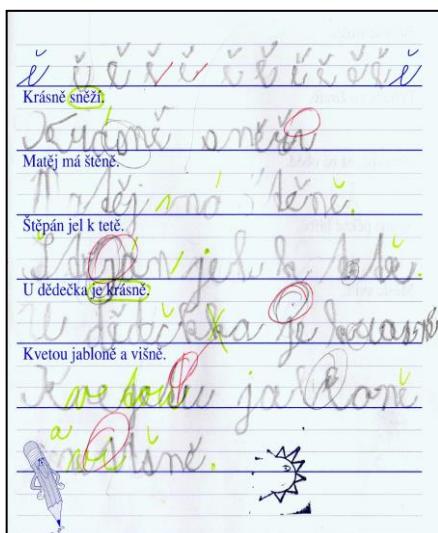 ě ě ě ě ě ě ě ě ě ě ě
Krásně sněží.
Krásně sněží
Matěj má štěně.
Matěj má štěně.
Štěpán jel k tetě.
jel k
U dědečka je krásně.
U je
Kvetou jabloně a višně.
Kvetou jabloně
a višně.